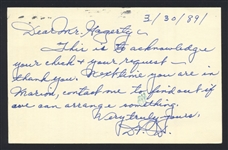 3/30/89
Dear Mr. Hagerty -
This is to acknowledge
your check & your request —
thank you. Next time you are in
Marion, contact me to find out if
we can arrange something.
Very truly yours,